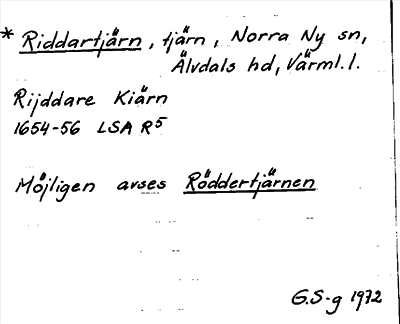 * Riddartjärn, tjärn, Norra Ny sn,
Älvdals hd, Värml. l.
Rijddare Kiärn
1654-56 LSA R5
Möjligen avses Röddertjärnen
G.S-g 1972